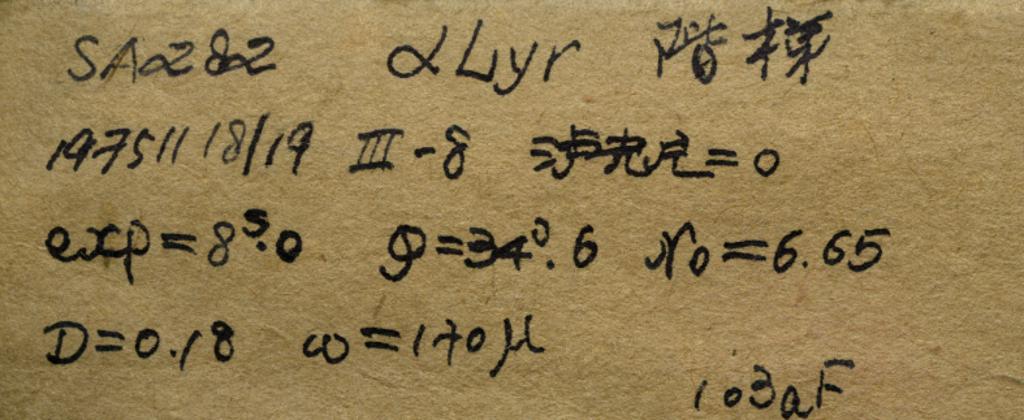 SA282 αLyr 階梯
19751118/19 III-8 =0
exp=8ˢ.0 φ=34°.6 r₀=6.65
D=0.18 ω=170μ
103aF